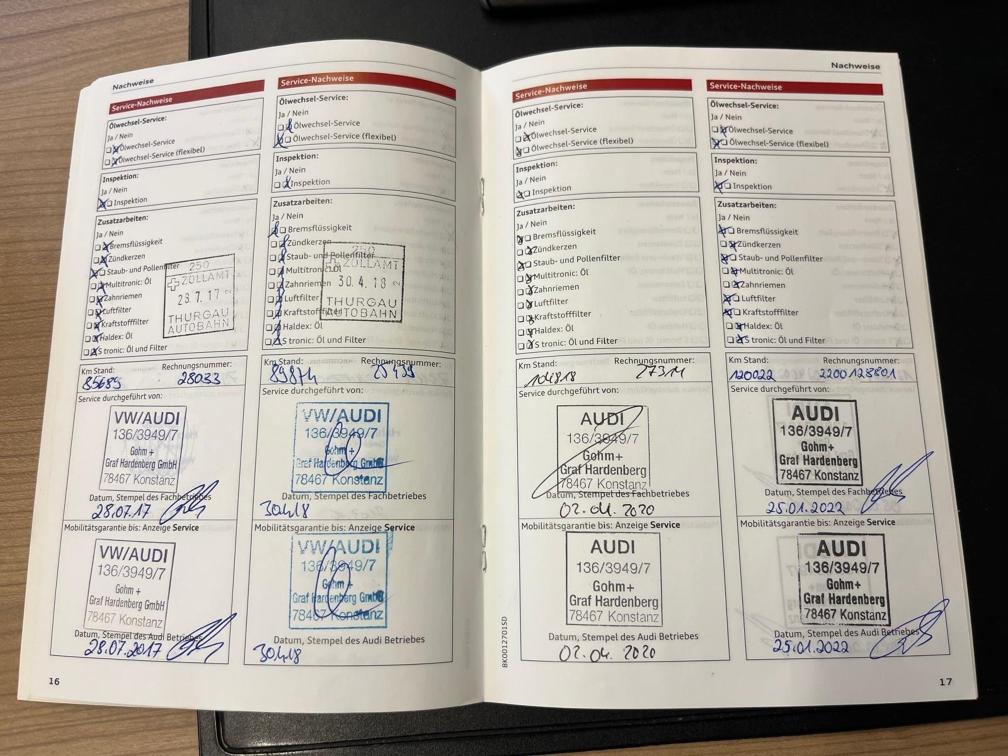 Nachweise
Service-Nachweise
Ölwechsel-Service:
Ja / Nein
Ölwechsel-Service
Ölwechsel-Service (flexibel)
Inspektion:
Ja / Nein
Inspektion
Zusatzarbeiten:
Ja / Nein
Bremsflüssigkeit
Zündkerzen
Staub- und Pollenfilter
Multitronic: Öl
Zahnriemen
Luftfilter
Kraftstofffilter
Haldex: Öl
S tronic: Öl und Filter
250
ZOLLAMT
28.7.17
THURGAU
AUTOBAHN
Km Stand: Rechnungsnummer:
85685 28033
Service durchgeführt von:
VW/AUDI
136/3949/7
Gohm+
Graf Hardenberg GmbH
78467 Konstanz
Datum, Stempel des Fachbetriebes
28.07.17
Mobilitätsgarantie bis: Anzeige Service
VW/AUDI
136/3949/7
Gohm +
Graf Hardenberg GmbH
78467 Konstanz
Datum, Stempel des Audi Betriebes
28.07.2017
16
Service-Nachweise
Ölwechsel-Service:
Ja / Nein
Ölwechsel-Service
Ölwechsel-Service (flexibel)
Inspektion:
Ja / Nein
Inspektion
Zusatzarbeiten:
Ja / Nein
Bremsflüssigkeit
Zündkerzen
Staub- und Pollenfilter
Multitronic: Öl
Zahnriemen
Luftfilter
Kraftstofffilter
Haldex: Öl
S tronic: Öl und Filter
250
ZOLLAMT
30.4.18
THURGAU
AUTOBAHN
Km Stand: Rechnungsnummer:
89874
Service durchgeführt von:
VW/AUDI
136/3949/7
Gohm +
Graf Hardenberg GmbH
78467 Konstanz
Datum, Stempel des Fachbetriebes
30.4.18
Mobilitätsgarantie bis: Anzeige Service
VW/AUDI
136/3949/7
Gohm +
Graf Hardenberg GmbH
78467 Konstanz
Datum, Stempel des Audi Betriebes
30.4.18
Nachweise
Service-Nachweise
Ölwechsel-Service:
Ja / Nein
Ölwechsel-Service
Ölwechsel-Service (flexibel)
Inspektion:
Ja / Nein
Inspektion
Zusatzarbeiten:
Ja / Nein
Bremsflüssigkeit
Zündkerzen
Staub- und Pollenfilter
Multitronic: Öl
Zahnriemen
Luftfilter
Kraftstofffilter
Haldex: Öl
S tronic: Öl und Filter
Km Stand: Rechnungsnummer:
104818 27314
Service durchgeführt von:
AUDI
136/3949/7
Gohm+
Graf Hardenberg
78467 Konstanz
Datum, Stempel des Fachbetriebes
02.04.2020
Mobilitätsgarantie bis: Anzeige Service
AUDI
136/3949/7
Gohm+
Graf Hardenberg
78467 Konstanz
Datum, Stempel des Audi Betriebes
02.04.2020
BK0012701SD
Service-Nachweise
Ölwechsel-Service:
Ja / Nein
Ölwechsel-Service
Ölwechsel-Service (flexibel)
Inspektion:
Ja / Nein
Inspektion
Zusatzarbeiten:
Ja / Nein
Bremsflüssigkeit
Zündkerzen
Staub- und Pollenfilter
Multitronic: Öl
Zahnriemen
Luftfilter
Kraftstofffilter
Haldex: Öl
S tronic: Öl und Filter
Km Stand: Rechnungsnummer:
120022 2200128801
Service durchgeführt von:
AUDI
136/3949/7
Gohm+
Graf Hardenberg
78467 Konstanz
Datum, Stempel des Fachbetriebes
25.01.2022
Mobilitätsgarantie bis: Anzeige Service
AUDI
136/3949/7
Gohm+
Graf Hardenberg
78467 Konstanz
Datum, Stempel des Audi Betriebes
25.01.2022
17